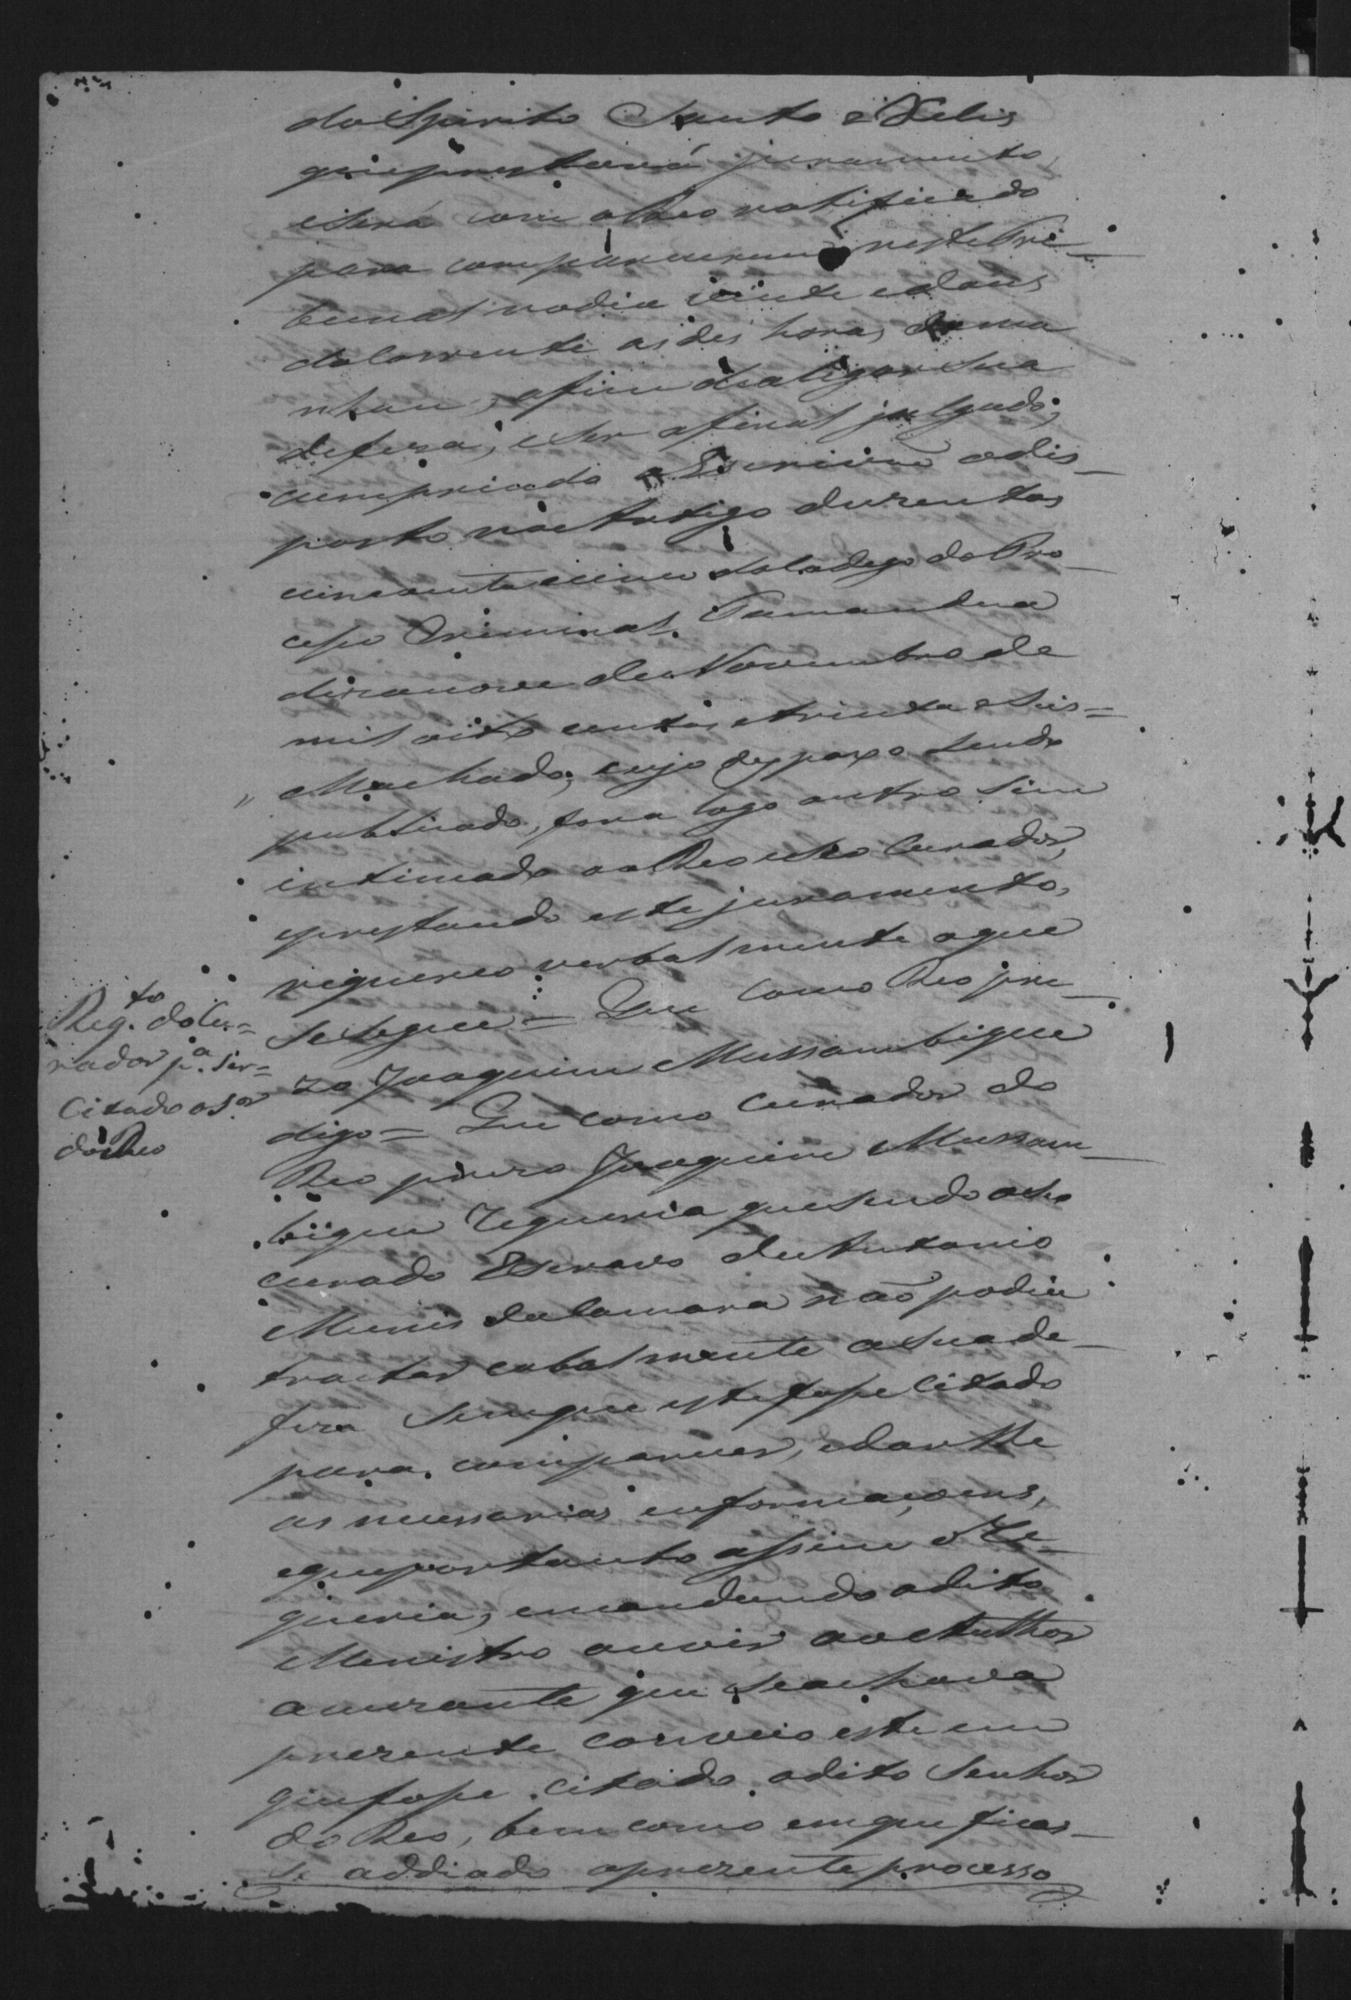 do Spirito Santo e Felis
que prestará juramento,
e será com o Reo notificado
para comparecerem neste Tri=
bunal no dia vinte e dous
do Corrente as des horas da ma
nhan, afim de alegar sua
defesa, e ser afinal julgado;
cumprindo o Escrivaõ o dis=
posto no Artigo duzentos
cincoenta e cinco do Codego do Pro=
cesso Criminal. Tamandua
dizanove de Novembro de
mil oito centos e trinta e seis=
Machado; cujo despaxo sendo
publicado, fora logo outro sim
intimado ao Reo e seo Curador,
e prestando este juramento,
requereo verbalmente o que
se segue = Que como Reo pre=
zo Joaquim Mussambique
digo = Que como Curador do
Reo prezo Joaquim Mussam=
bique requeria que sendo o seo
curado Escravo de Antonio
Munis da Camara não podia
tractar cabalmente a sua de=
feza sem que este fosse Citado
para comparecer, e dar lhe
as necessarias enformaçoens,
e que portanto assim o Re=
queria, e mandando o dito
Menistro ouvir ao Authòr
acuzante que se achava
prezente conveio este em
que fosse citado o dito Senhor
do Reo, bem como em que ficas=
se addiado o prezente processo
Reg.to do Cu=
rador p.a ser=
Citado o S.or
do Reo